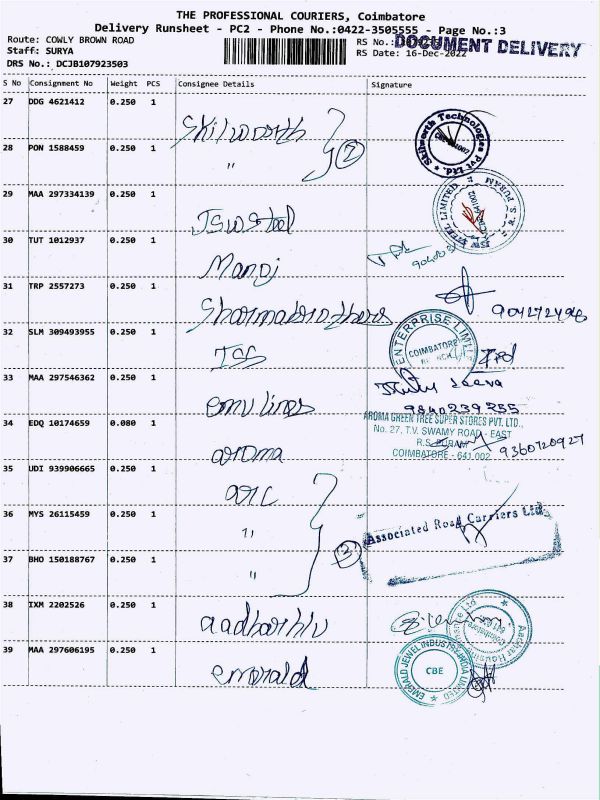 THE PROFESSIONAL COURIERS, Coimbatore
Delivery Runsheet - PC2 - Phone No.:0422-3505555 - Page No.:3
Route: COWLY BROWN ROAD
RS No.:
DOCUMENT DELIVERY
Staff: SURYA
RS Date: 16-Dec-2022
DRS No.: DCJB107923503
S No Consignment No Weight PCS Consignee Details Signature
27 DDG 4621412 0.250 1
Skilworth
Skilworth Technologies Pvt Ltd.
28 PON 1588459 0.250 1
" 2
29 MAA 297334139 0.250 1
JSW Steel
30 TUT 1012937 0.250 1
Manoj
31 TRP 2557273 0.250 1
Sharmabrothers
32 SLM 309493955 0.250 1
ENTERPRISE
COIMBATORE
33 MAA 297546362 0.250 1
emu lines
9840239255
34 EDQ 10174659 0.080 1
aroma
AROMA GREEN TREE SUPER STORES PVT. LTD.,
No. 27, T.V. SWAMY ROAD - EAST
R.S. PURAM
COIMBATORE - 641 002
9360720927
35 UDI 939906665 0.250 1
arc
36 MYS 26115459 0.250 1
"
Associated Road Carriers Ltd
37 BHO 150188767 0.250 1
"
38 IXM 2202526 0.250 1
39 MAA 297606195 0.250 1
emerald
EMERALD JEWEL INDUSTRY INDIA LIMITED
CBE